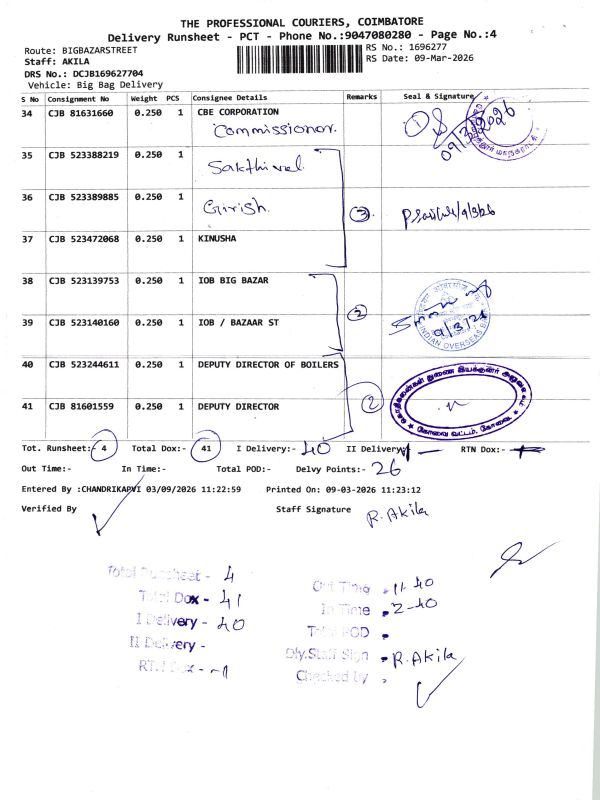 THE PROFESSIONAL COURIERS, COIMBATORE
Delivery Runsheet - PCT - Phone No.:9047080280 - Page No.:4
Route: BIGBAZARSTREET
RS No.: 1696277
Staff: AKILA
RS Date: 09-Mar-2026
DRS No.: DCJB169627704
Vehicle: Big Bag Delivery
S No Consignment No Weight PCS Consignee Details Remarks Seal & Signature
34 CJB 81631660 0.250 1 CBE CORPORATION
Commissioner. 1 09/3/2026
35 CJB 523388219 0.250 1 Sakthivel
36 CJB 523389885 0.250 1 Girish. 3
37 CJB 523472068 0.250 1 KINUSHA
38 CJB 523139753 0.250 1 IOB BIG BAZAR
2
39 CJB 523140160 0.250 1 IOB / BAZAAR ST 9/3/26
INDIAN OVERSEAS
40 CJB 523244611 0.250 1 DEPUTY DIRECTOR OF BOILERS
41 CJB 81601559 0.250 1 DEPUTY DIRECTOR 2
Tot. Runsheet:- 4 Total Dox:- 41 I Delivery:- 40 II Delivery:- RTN Dox:-
Out Time:- In Time:- Total POD:- Delvy Points:- 26
Entered By :CHANDRIKAPVI 03/09/2026 11:22:59 Printed On: 09-03-2026 11:23:12
Verified By Staff Signature R. Akila
Total Runsheet - 4
Out Time . 11-40
Total Dox - 41
In Time . 2-40
I Delivery - 40
Total POD .
II Delivery -
Dly.Staff Sign . R. Akila
RTN Dox - 1
Checked by .